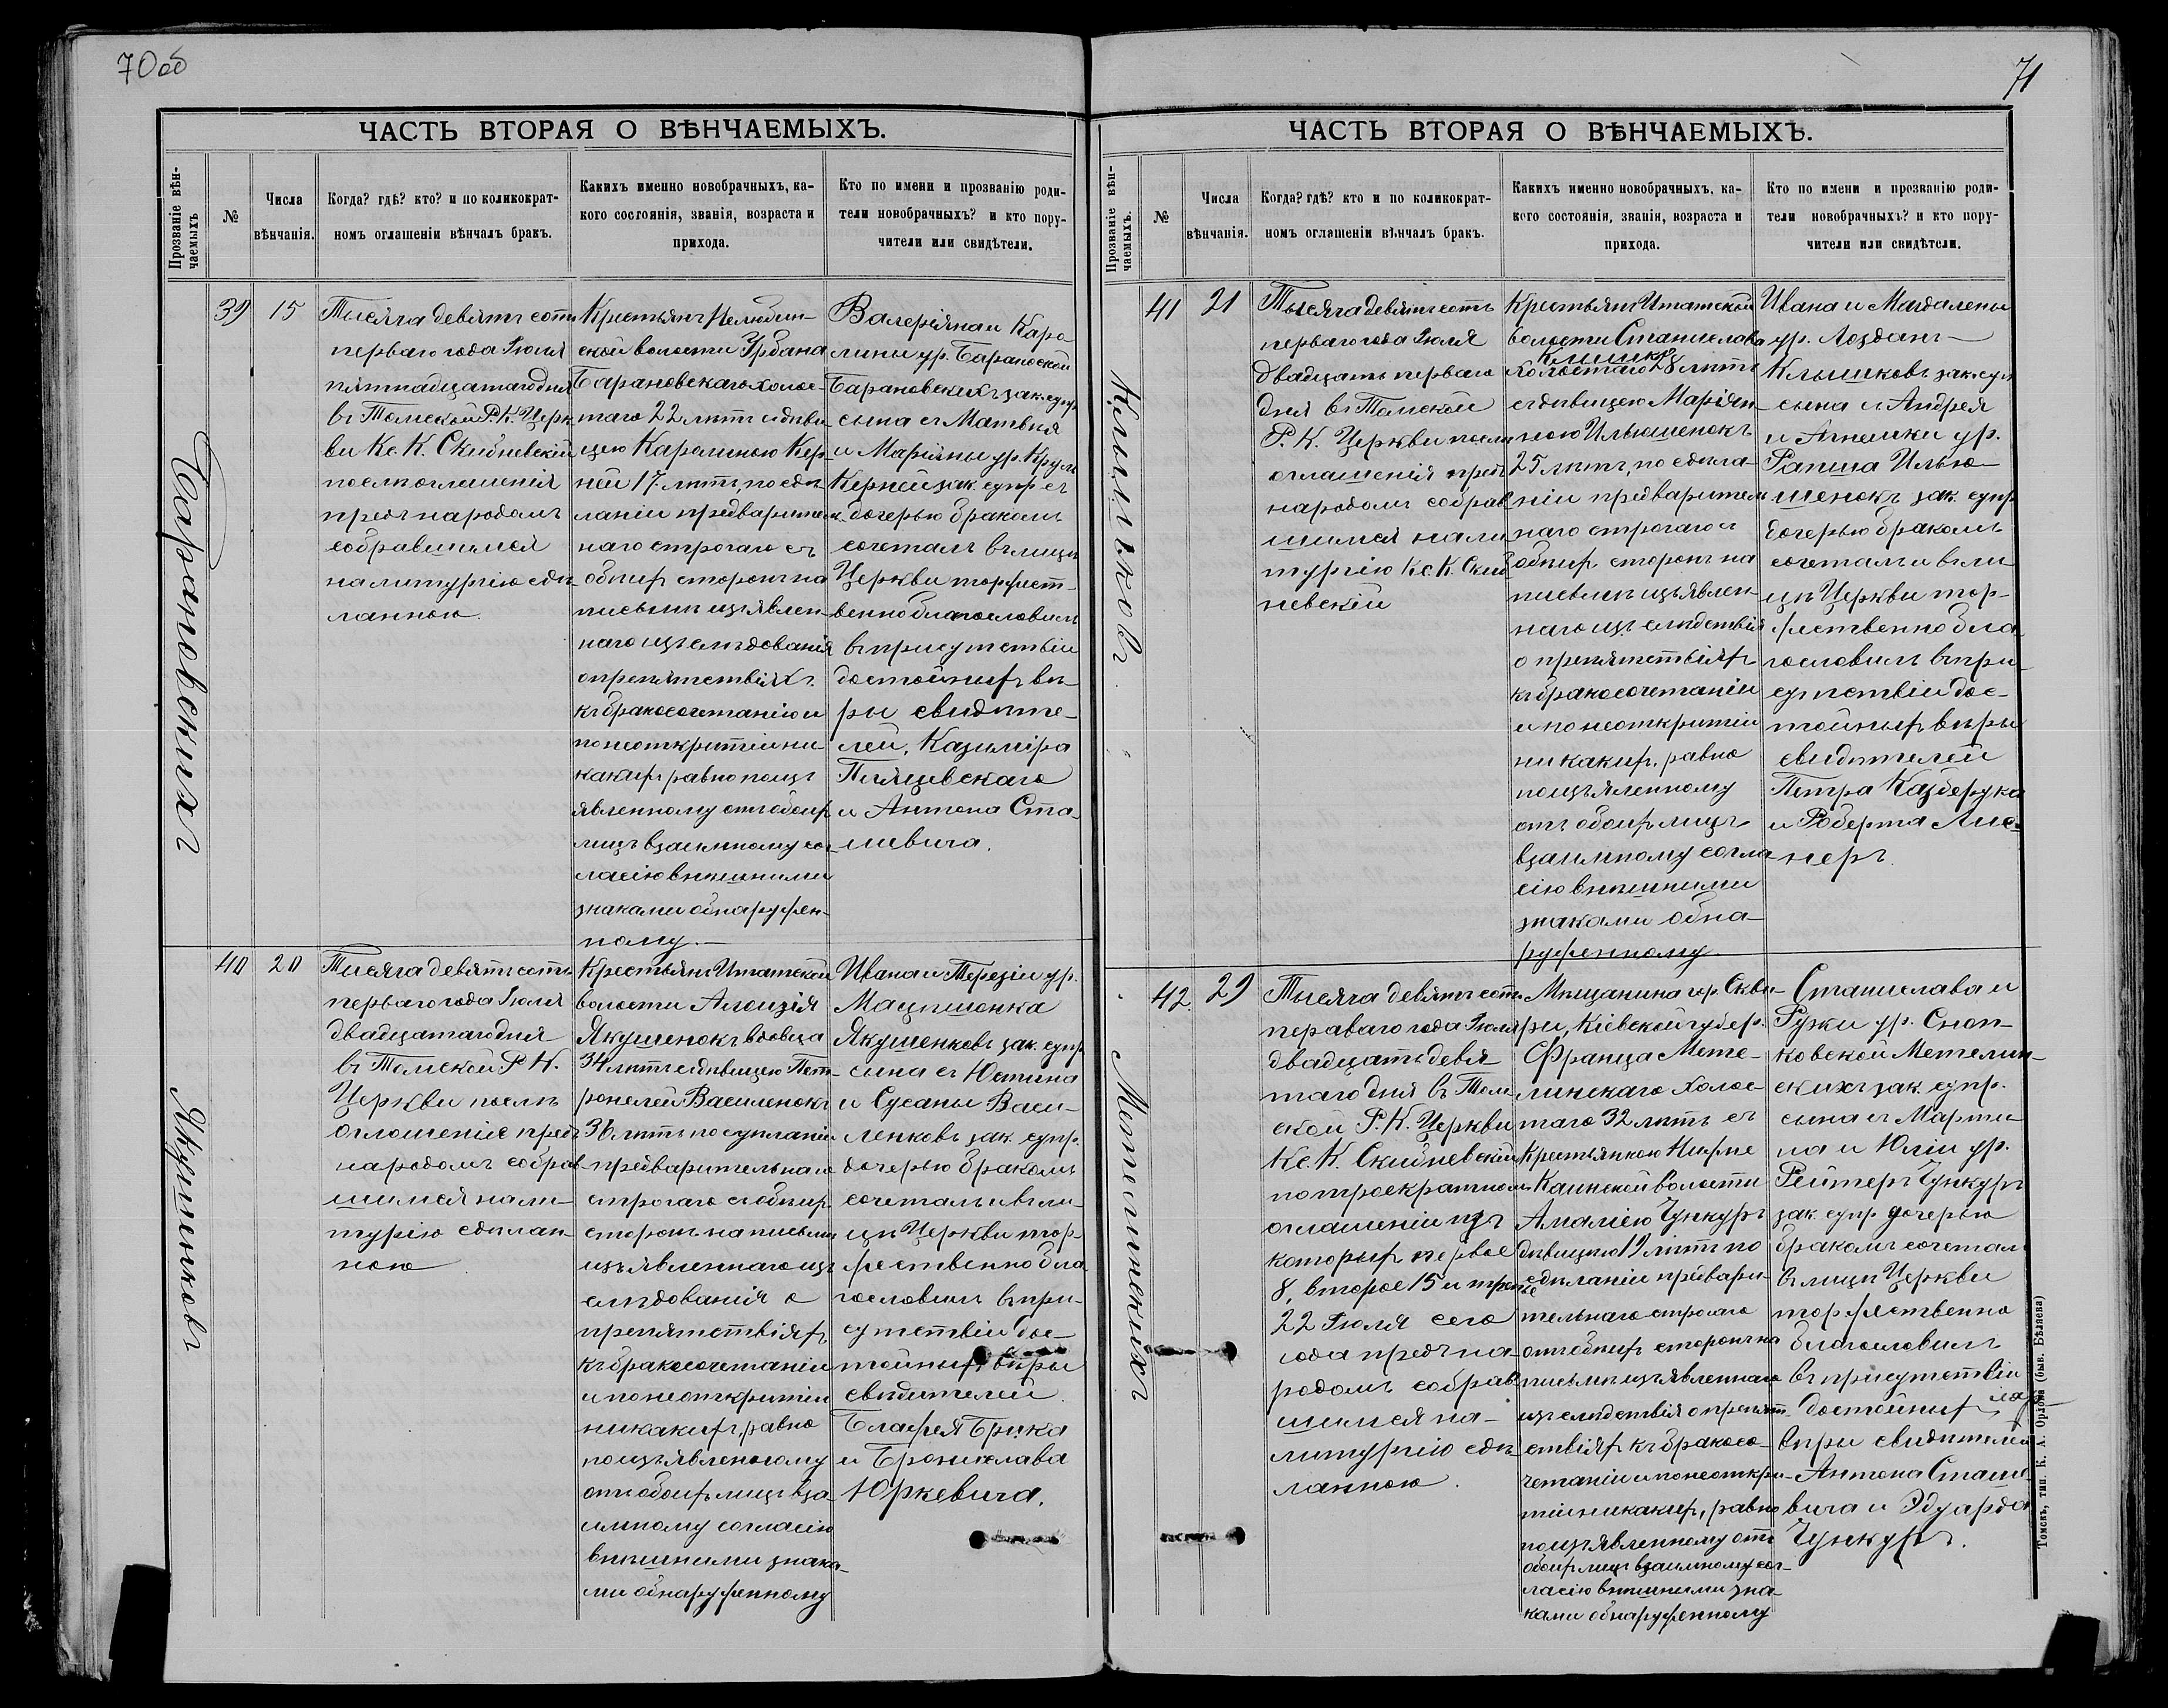 70 об
ЧАСТЬ ВТОРАЯ О ВѢНЧАЕМЫХЪ.
Прозваніе вѣн-
чаемыхъ
№
Числа
вѣнчанія.
Когда? гдѣ? кто? и по коликократ-
номъ оглашеніи вѣнчалъ бракъ.
Какихъ именно новобрачныхъ, ка-
кого состоянія, званія, возраста и
прихода.
Кто по имени и прозванію роди-
тели новобрачныхъ? и кто пору-
чители или свидѣтели.
Барановскихъ
39
15
Тысяча девятьсотъ
перваго года Іюля
пятнадцатаго дня
въ Томской Р. К. Церк
ви Кс. К. Скибневскій
послѣ оглашенія
предъ народомъ
собравшимся
на литургію сдѣ-
ланною.
Крестьянъ Нелюбин-
ской волости Урбана
Барановскаго холос-
таго 22 лѣтъ съ дѣви-
цею Каролиною Кер-
ней 17 лѣтъ, по сдѣ-
ланіи предварител
наго строгаго съ
обѣихъ сторонъ на
письмѣ изъявлен-
наго изслѣдованія
о препятствіяхъ
къ бракосочетанію и
по неоткрытіи ни-
какихъ равно по изъ
явленному отъ обоихъ
лицъ взаимному со-
гласію внѣшними
знаками обнаружен-
ному.—
Валеріяна и Каро
лины ур. Бараноской
Барановскихъ зак. супр
сына съ Матвѣя
и Маріяны ур. Круль
Керней зак. супр съ
дочерью бракомъ
сочеталъ въ лицѣ
Церкви торжест-
венно благословилъ
въ присутствіи
достойныхъ вѣ-
ры свидѣте-
лей, Казиміра
Пляцевскаго
и Антона Ста-
шевича.
Якушенковъ
40
20
Тысяча девятьсотъ
перваго года Іюля
двадцатаго дня
въ Томской Р К.
Церкви послѣ
оглошеніе предъ
народомъ собрав-
шимся на ли-
тургію сдѣлан-
ною
Крестьянъ Итатской
волости Алоизія
Якушенокъ вдовца
34 лѣтъ съ дѣвицею Пет-
ронелей Василенокъ
36 лѣтъ по сдѣланіи
предварительнаго
строгаго съ обѣихъ
сторонъ на письмѣ
изъявленнаго из
слѣдованія о
препятствіяхъ
къ бракосочетанію
и по неоткрытіи
никакихъ, равно
по изъявленному
отъ обоихъ лицъ вза-
имному согласію
внѣшними знака-
ми обнаруженному
Ивана и Терезіи ур.
Мацишонка
Якушенковъ зак. супр
сына съ Юстина
и Сусаны Васи-
ленковъ зак. супр.
дочерью бракомъ
сочеталъ и въ ли-
цѣ Церкви тор-
жественно бла
гословилъ въ при-
сутствіи дос-
тойныхъ вѣры
свидѣтелей
Блажея Брика
и Бронислава
Юркевича.
71
ЧАСТЬ ВТОРАЯ О ВѢНЧАЕМЫХЪ.
Прозваніе вѣн-
чаемыхъ.
№
Числа
вѣнчанія.
Когда? гдѣ? кто и по коликократ-
номъ оглашеніи вѣнчалъ бракъ.
Какихъ именно новобрачныхъ, ка-
кого состоянія, званія, возраста и
прихода.
Кто по имени и прозванію роди-
тели новобрачныхъ? и кто пору-
чители или свидѣтели.
Клышковъ
41
21
Тысяча девятьсотъ
перваго года Іюля
двадцать перваго
дня въ Томской
Р. К. Церкви послѣ
оглашенія предъ
народомъ собрав
шимся на ли
тургію Кс. К. Скиб
невскій
Крестьянъ Итатской
волости Станислава
Клышко
холостаго 28 лѣтъ
съ дѣвицею Маріян-
ною Ильюшенокъ
25 лѣтъ, по сдѣла-
ніи предварител
наго строгаго съ
обѣихъ сторонъ на
письмѣ изъявлен-
наго изслѣдствія
о препятствіяхъ
къ бракосочетаніи
и по неоткрытіи
никакихъ, равно
по изъяленному
отъ обоихъ лицъ
взаимному согла
сію внѣшними
знаками обна-
руженному
Ивана и Магдалены
ур. Лозданъ
Клышковъ зак. супр
сына съ Андрея
и Агнешки ур.
Рапша Илью-
шенокъ зак. супр
дочерью бракомъ
сочеталъ и въ ли
цѣ Церкви тор-
жественно бла
гословилъ въ при
сутствіи дос-
тойныхъ вѣры
свидѣтелей
Петра Казберука
и Роберта Лис-
неръ.
Метелинскихъ
42
29
Тысяча девятьсотъ
перваго года Іюля
двадцать девя
таго дня въ Том
ской Р. К. Церкви
Кс. К. Скибневскій
по троекратномъ
оглашеніи изъ
которыхъ первое
8, второе 15 и третье
22 Іюля сего
года предъ на-
родомъ собрав
шимся на
литургію сдѣ-
ланною.
Мѣщанина гор. Скви-
ры, Кіевской губер.
Франца Мете-
линскаго холос-
таго 32 лѣтъ съ
Крестьянкою Нижне
Каинской волости
Амаліею Чункуръ
дѣвицею 19 лѣтъ по
сдѣланіи предвари-
тельнаго строгаго
отъ обѣихъ сторонъ на
письмѣ изъявленнаго
изслѣдствія о препят-
ствіяхъ къ бракосо-
четаніи и по неоткры-
тіи никакихъ, равно
по изъявленному отъ
обоихъ лицъ взаимному сог-
ласію внѣшними зна-
ками обнаруженному
Станислава и
Ружи ур. Сноп-
ковской Метелин-
скихъ зак. супр.
сына съ Марти-
на и Юліи ур.
Рейтеръ Чункуръ
зак. супр дочерью
бракомъ сочеталъ
въ лицѣ Церкви
торжественно
благословилъ
въ присутствіи
достойныхъ
вѣры свидѣтелей
Антона Сташе
вича и Эдуарда
Чункуръ.
Томскъ, тип. К. А. Орлова (быв. Бѣляева)